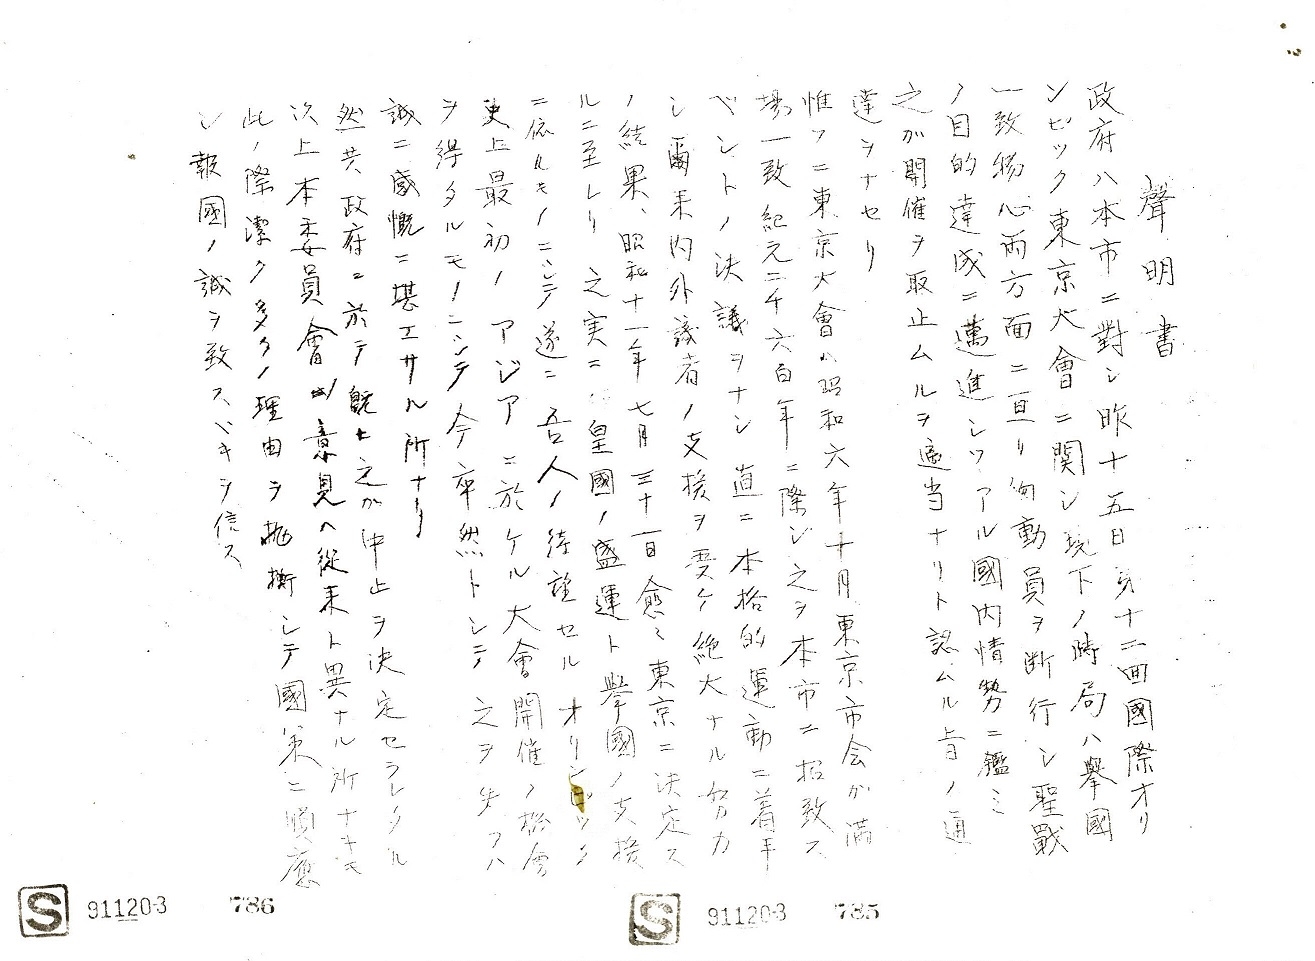 聲明書
政府ハ本市ニ對シ昨十五日第十二回國際オリ
ンピック東京大會ニ関シ現下ノ時局ハ擧國
一致物心両方面ニ亘リ動員ヲ断行シ聖戰
ノ目的達成ニ邁進シツアル國内情勢ニ鑑ミ
之が開催ヲ取止ムルヲ適当ナリト認ムル旨ノ通
達ヲナセリ
惟フニ東京大會ハ昭和六年十月東京市会が満
場一致紀元二千六百年ニ際シ之ヲ本市ニ招致ス
ベントノ決議ヲナシ直ニ本格的運動ニ着手
シ爾来内外議者ノ支援ヲ受ケ絶大ナル努力
ノ結果、昭和十一年七月三十一日愈々東京ニ決定ス
ルニ至レリ之実ニ皇國ノ盛運ト擧國ノ支援
ニ依ルモノニシテ遂ニ吾人ノ待望セルオリンピック
史上最初ノアジアニ於ケル大會開催ノ機會
ヲ得タルモノニシテ今卒然トシテ之ヲ失フハ
誠ニ感慨ニ堪エサル所ナリ
然共政府ニ於テ既ニ之が中止ヲ決定セラレタル
以上本委員會ノ意見ハ從来ト異ナル所ナキモ
此ノ際潔ク多クノ理由ヲ抛擲シテ國策ニ順應
シ報國ノ誠ヲ致スベキヲ信ス
S 911203 786
S 911203 785